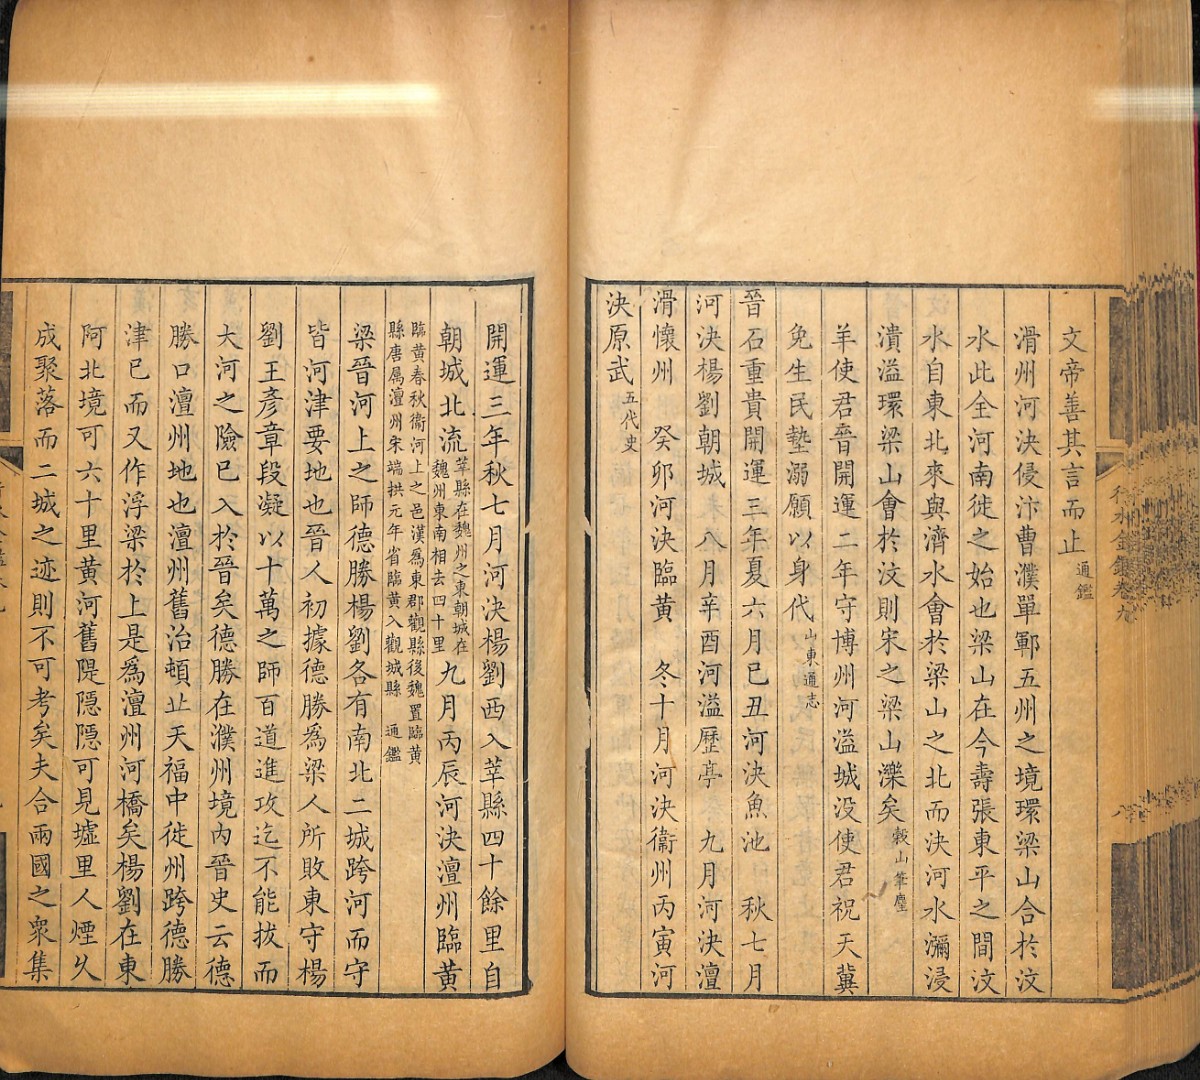 文帝善其言而止通鑑
滑州河決侵汴曹濮單鄆五州之境環梁山合於汶
水此全河南徙之始也梁山在今壽張東平之間汶
水自東北來與濟水會於梁山之北而決河水瀰浸
潰溢環梁山會於汶則宋之梁山濼矣穀山筆麈
羊使君晉開運二年守博州河溢城没使君祝天冀
免生民墊溺願以身代山東通志
晉石重貴開運三年夏六月己丑河決魚池 秋七月
河決楊劉朝城 八月辛酉河溢歷亭 九月河決澶
滑懷州 癸卯河決臨黃 冬十月河決衞州丙寅河
決原武五代史
行水金鑑卷九
開運三年秋七月河決楊劉西入莘縣四十餘里自
朝城北流莘縣在魏州之東朝城在魏州東南相去四十里九月丙辰河決澶州臨黃
臨黃春秋衞河上之邑漢爲東郡觀縣後魏置臨黃縣唐屬澶州宋端拱元年省臨黃入觀城縣 通鑑
梁晉河上之師德勝楊劉各有南北二城跨河而守
皆河津要地也晉人初據德勝爲梁人所敗東守楊
劉王彥章段凝以十萬之師百道進攻迄不能拔而
大河之險已入於晉矣德勝在濮州境内晉史云德
勝口澶州地也澶州舊治頓丘天福中徙州跨德勝
津已而又作浮梁於上是爲澶州河橋矣楊劉在東
阿北境可六十里黄河舊隄隱隱可見墟里人煙乆
成聚落而二城之迹則不可考矣夫合兩國之衆集